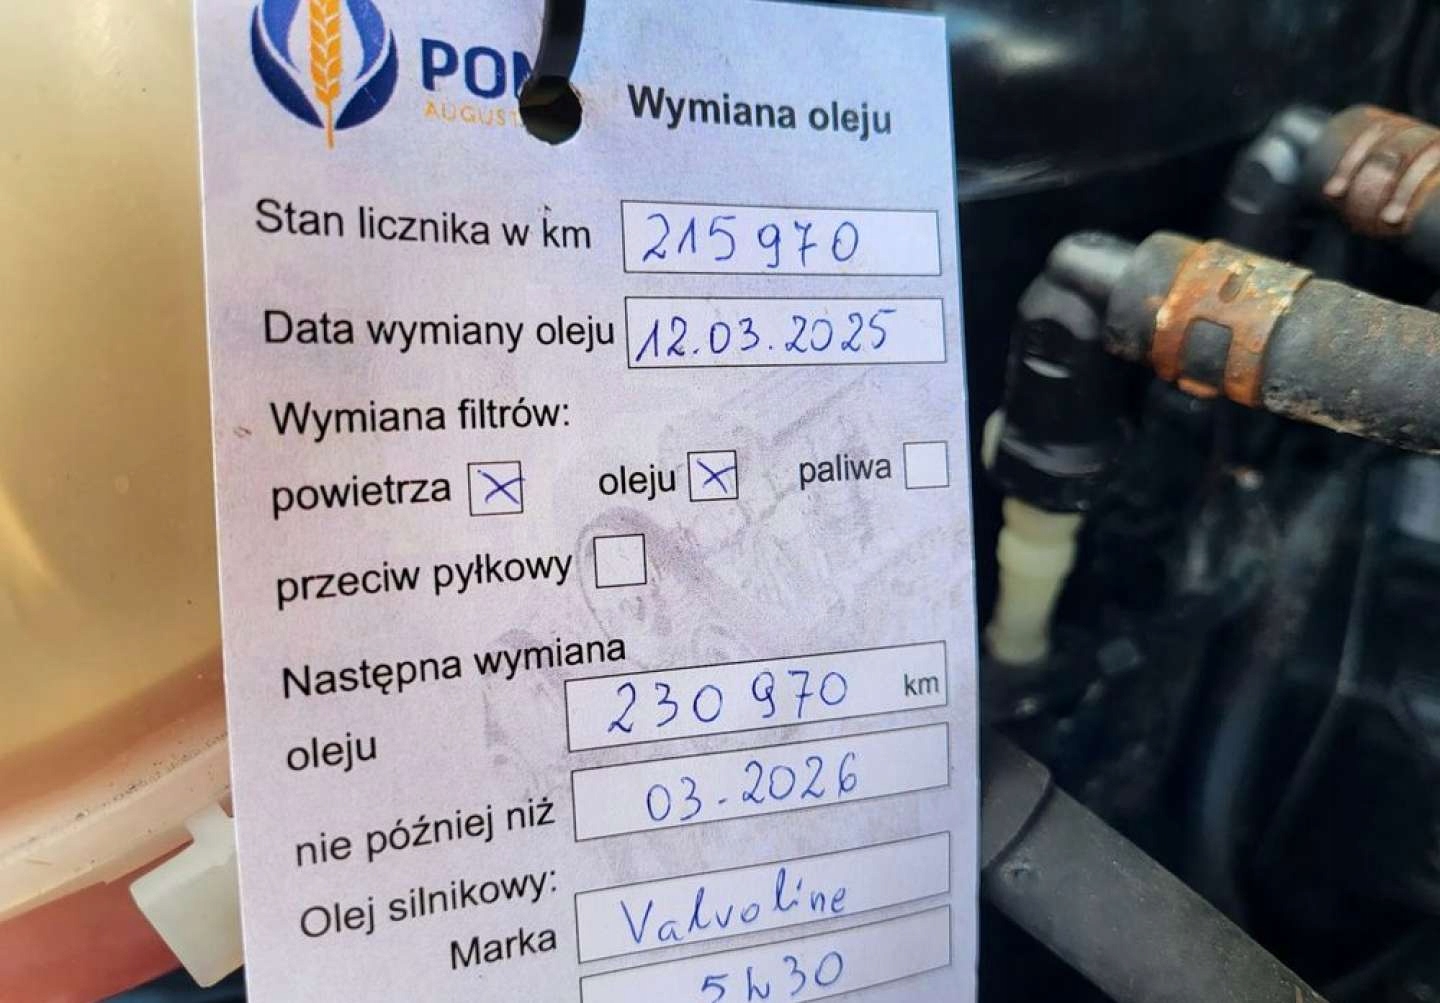 Wymiana oleju
Stan licznika w km 215 970
Data wymiany oleju 12.03.2025
Wymiana filtrów:
powietrza X oleju X paliwa
przeciw pyłkowy
Następna wymiana
oleju 230 970 km
nie później niż 03.2026
Olej silnikowy:
Marka Valvoline
5W30